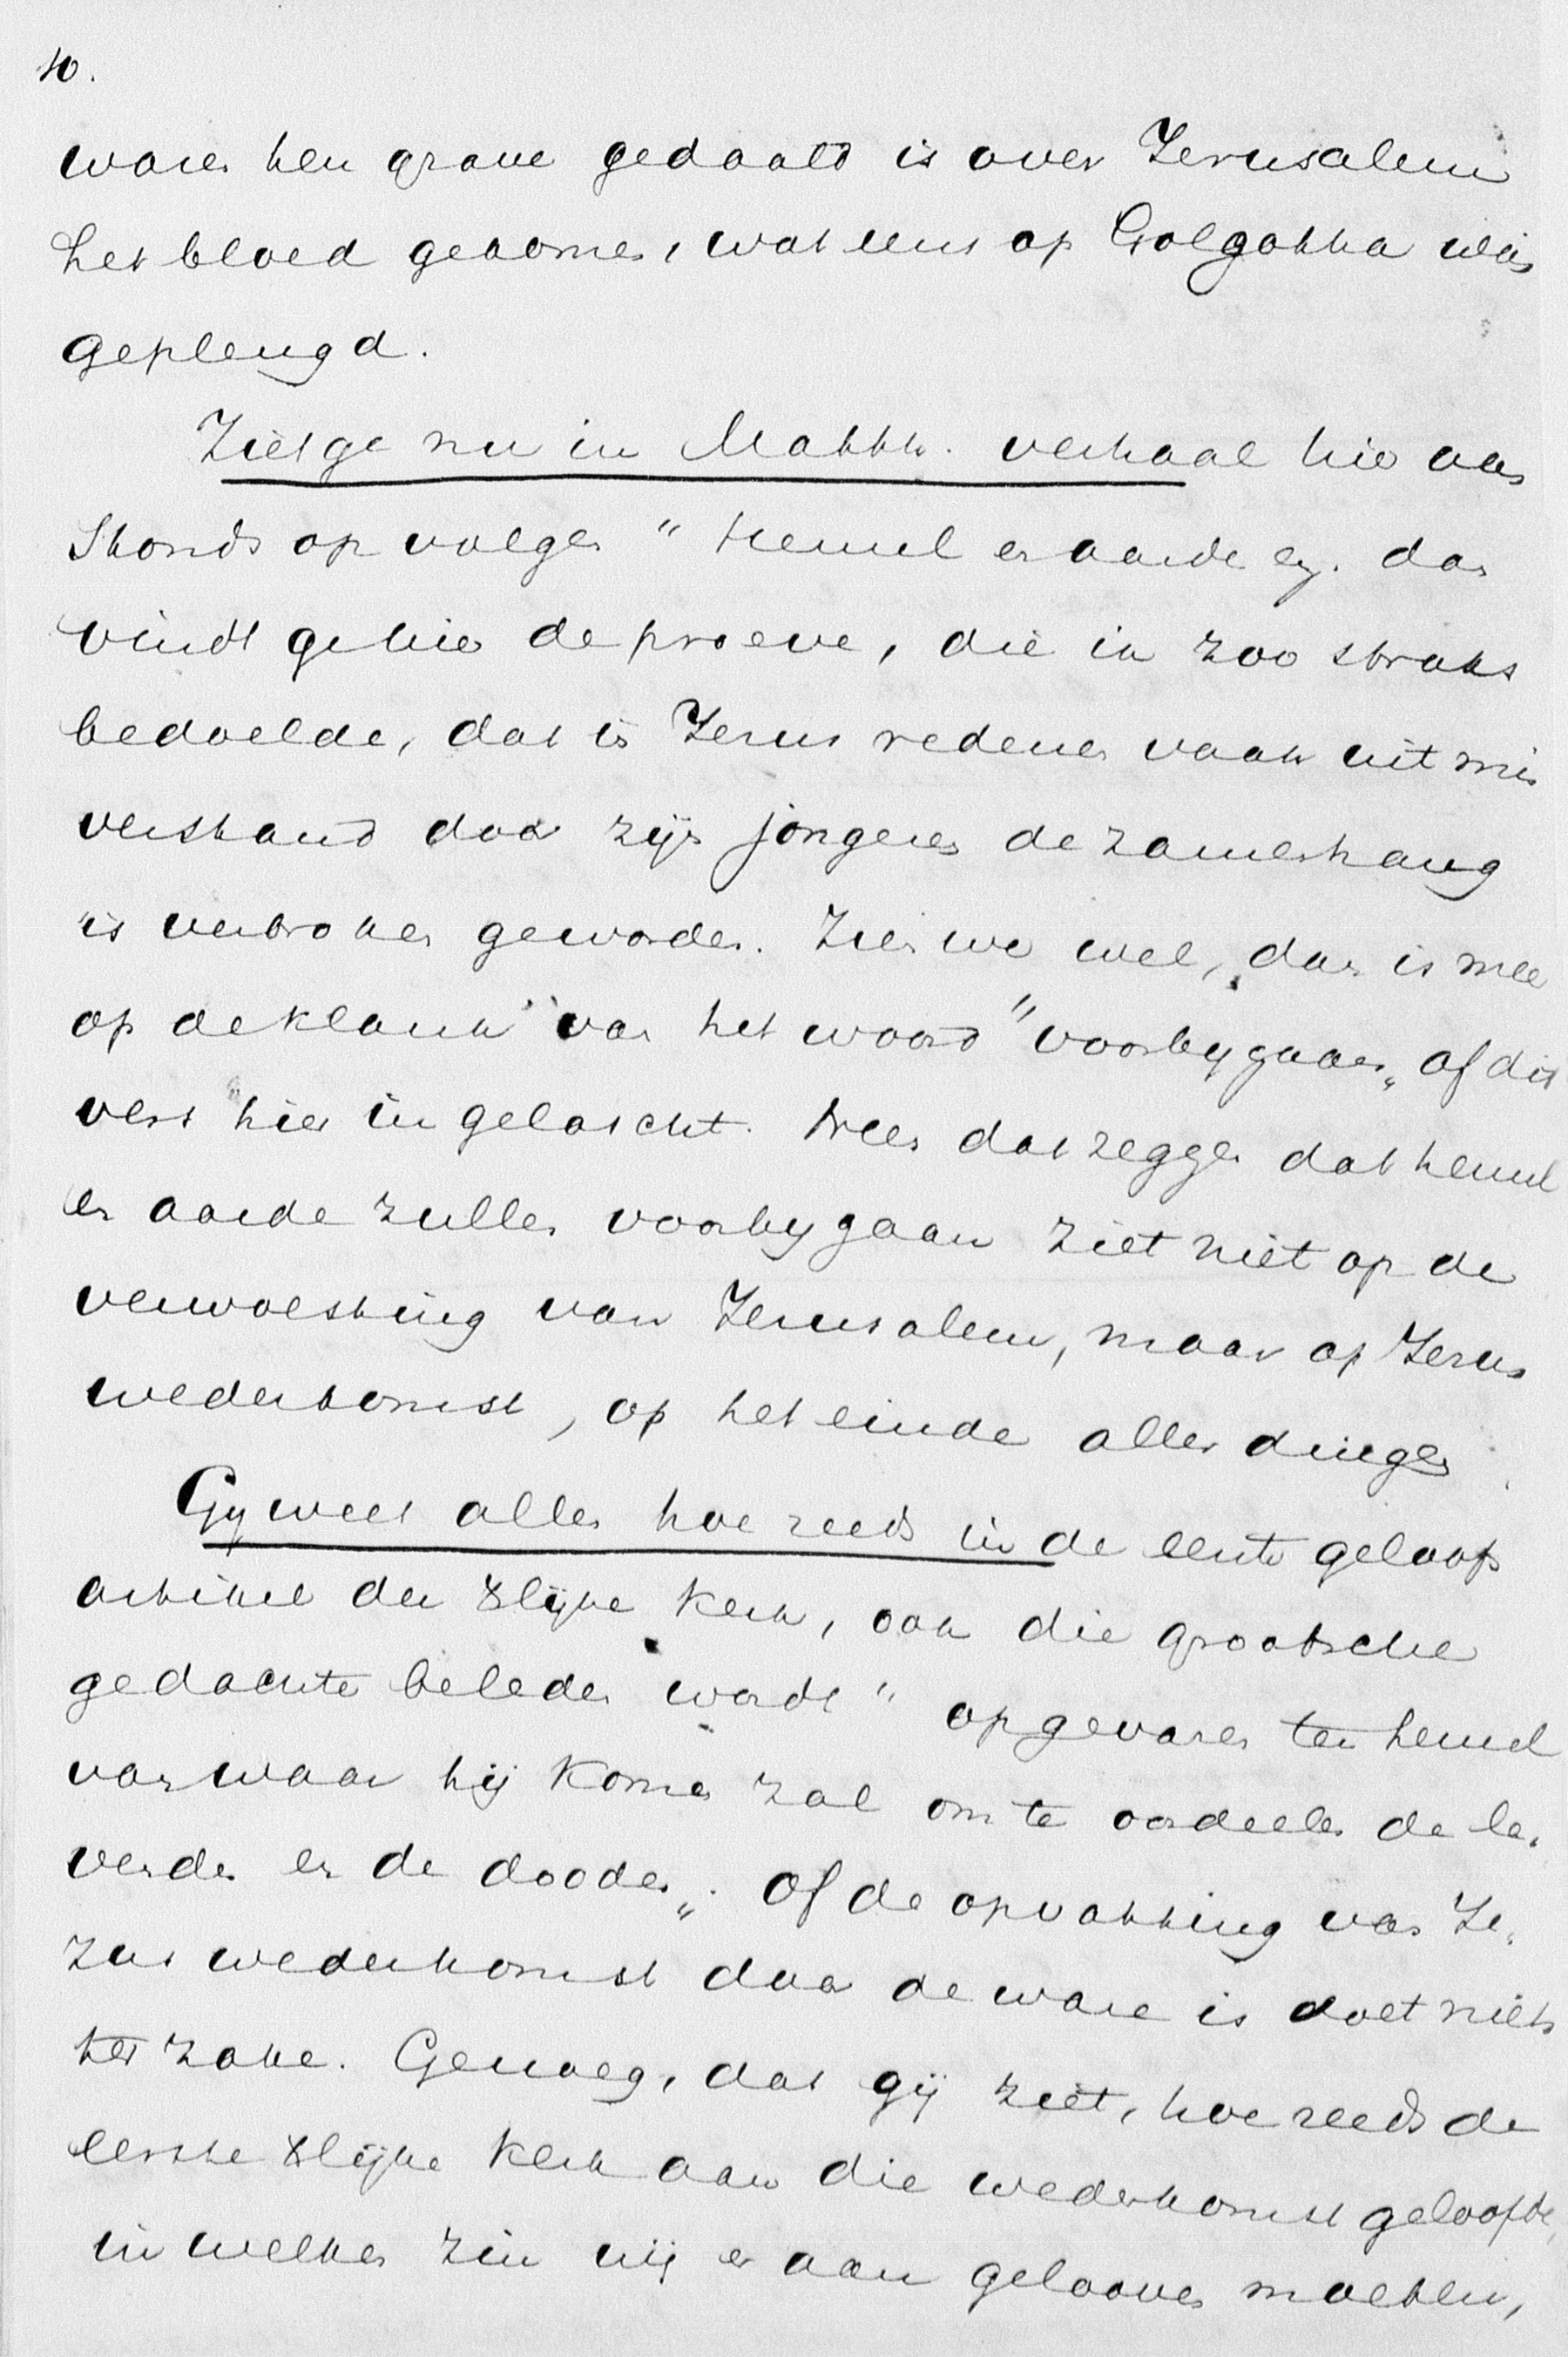 10.
waren ten grave gedaald is over Jerusalem
het bloed gekomen, wat eens op Golgotha was
geplengd.
Ziet ge nu in Matth. verhaal hier aan
stonds op volgen "Hemel en aarde enz. dan
vindt ge hier de proeve, die ik zoo straks
bedoelde, dat in Jezus redenen vaak uit mis
verstand door zijn jongeren de zamenhang
is verbroken geworden. Zien we wel, dan is mee
op de klank van het woord "voorbygaan„ of dit
vers hier in gelascht. Nee dat zeggen dat hemel
en aarde zullen voorby gaan ziet niet op de
verwoesting van Jerusalem, maar op Jezus
wederkomst, op het einde aller dingen
Gy weet allen hoe reeds in de eerste geloofs
artikel der Xlijke Kerk, ook die grootsche
gedachte beleden wordt " opgevaren ten hemel
van waar hij komen zal om te oordeelen de le„
venden en de dooden„. Of de opvatting van Je„
zus wederkomst daar de ware is doet niets
ter zake. Genoeg, dat gij ziet, hoe reeds de
eerste Xlijke Kerk aan die wederkomst geloofde,
in welken zin wij er aan gelooven moeten,